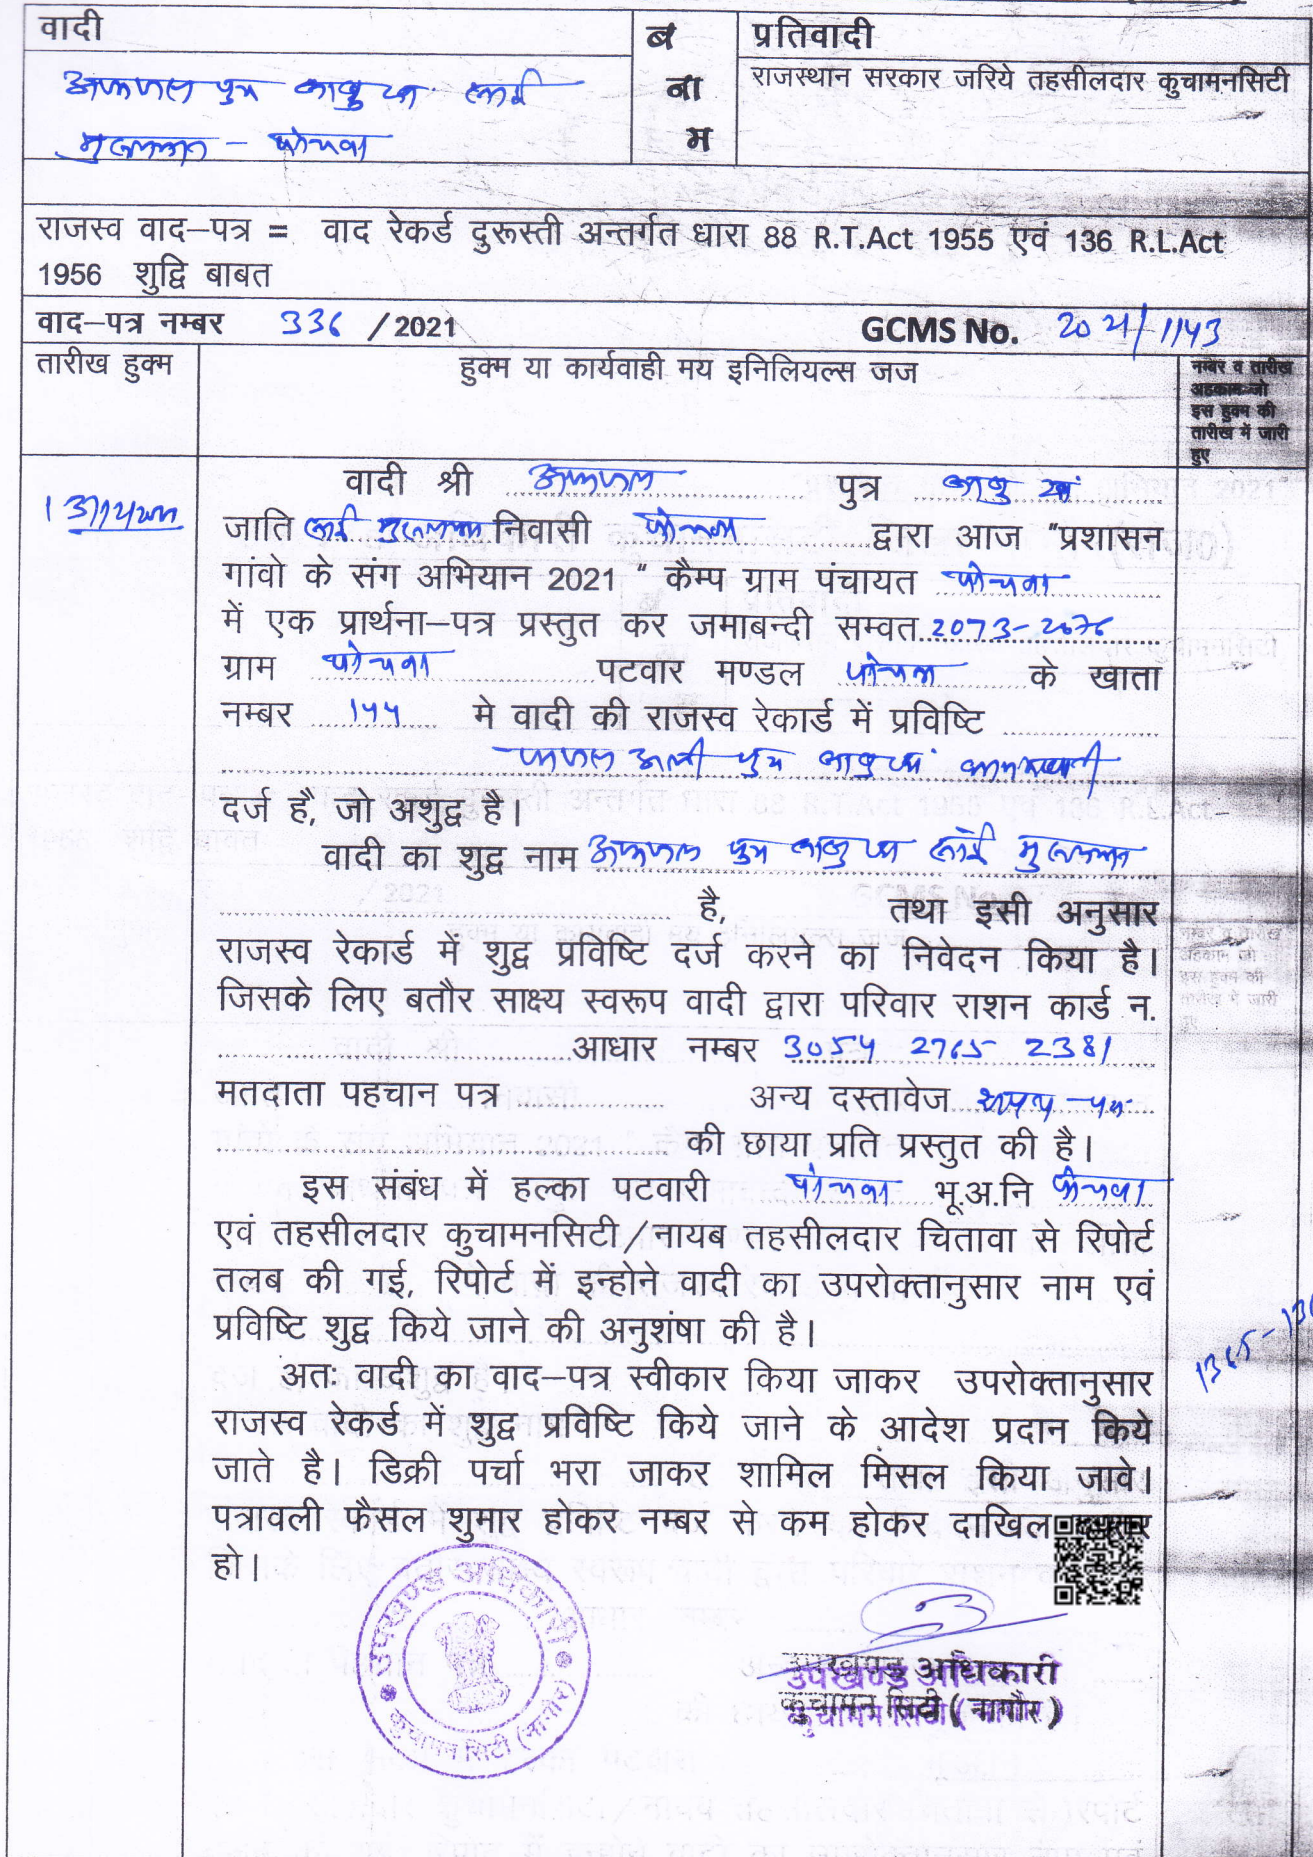 वादी
ब
ना
म
प्रतिवादी
राजस्थान सरकार जरिये तहसीलदार कुचामनसिटी
अफजल पुत्र कालु खा
पांचवा
राजस्व वाद–पत्र = वाद रेकर्ड दुरूस्ती अन्तर्गत धारा 88 R.T.Act 1955 एवं 136 R.L.Act
1956 शुद्वि बाबत
वाद–पत्र नम्बर 336 /2021 GCMS No. 2021/1143
तारीख हुक्म
हुक्म या कार्यवाही मय इनिलियल्स जज
नम्बर व तारीख
अहकाम जो
इस हुक्म की
तारीख में जारी
हुए
वादी श्री अफजल पुत्र कालु खां
जाति निवासी पांचवा द्वारा आज "प्रशासन
गांवो के संग अभियान 2021 " कैम्प ग्राम पंचायत पांचवा
में एक प्रार्थना–पत्र प्रस्तुत कर जमाबन्दी सम्वत 2073-2076
ग्राम पांचवा पटवार मण्डल पांचवा के खाता
नम्बर 144 मे वादी की राजस्व रेकार्ड में प्रविष्टि
अली पुत्र कालु खां
दर्ज है, जो अशुद्व है।
वादी का शुद्व नाम अफजल पुत्र कालु खा
है, तथा इसी अनुसार
राजस्व रेकार्ड में शुद्व प्रविष्टि दर्ज करने का निवेदन किया है।
जिसके लिए बतौर साक्ष्य स्वरूप वादी द्वारा परिवार राशन कार्ड न.
आधार नम्बर 3054 2765 2381
मतदाता पहचान पत्र अन्य दस्तावेज शपथ-पत्र
की छाया प्रति प्रस्तुत की है।
इस संबंध में हल्का पटवारी पांचवा भू.अ.नि पांचवा
एवं तहसीलदार कुचामनसिटी/नायब तहसीलदार चितावा से रिपोर्ट
तलब की गई, रिपोर्ट में इन्होने वादी का उपरोक्तानुसार नाम एवं
प्रविष्टि शुद्व किये जाने की अनुशंषा की है।
अतः वादी का वाद–पत्र स्वीकार किया जाकर उपरोक्तानुसार
राजस्व रेकर्ड में शुद्व प्रविष्टि किये जाने के आदेश प्रदान किये
जाते है। डिक्री पर्चा भरा जाकर शामिल मिसल किया जावे।
पत्रावली फैसल शुमार होकर नम्बर से कम होकर दाखिल
हो।
उपखण्ड अधिकारी
कुचामन सिटी (नागौर)
उपखण्ड अधिकारी
कुचामन सिटी (नागौर)